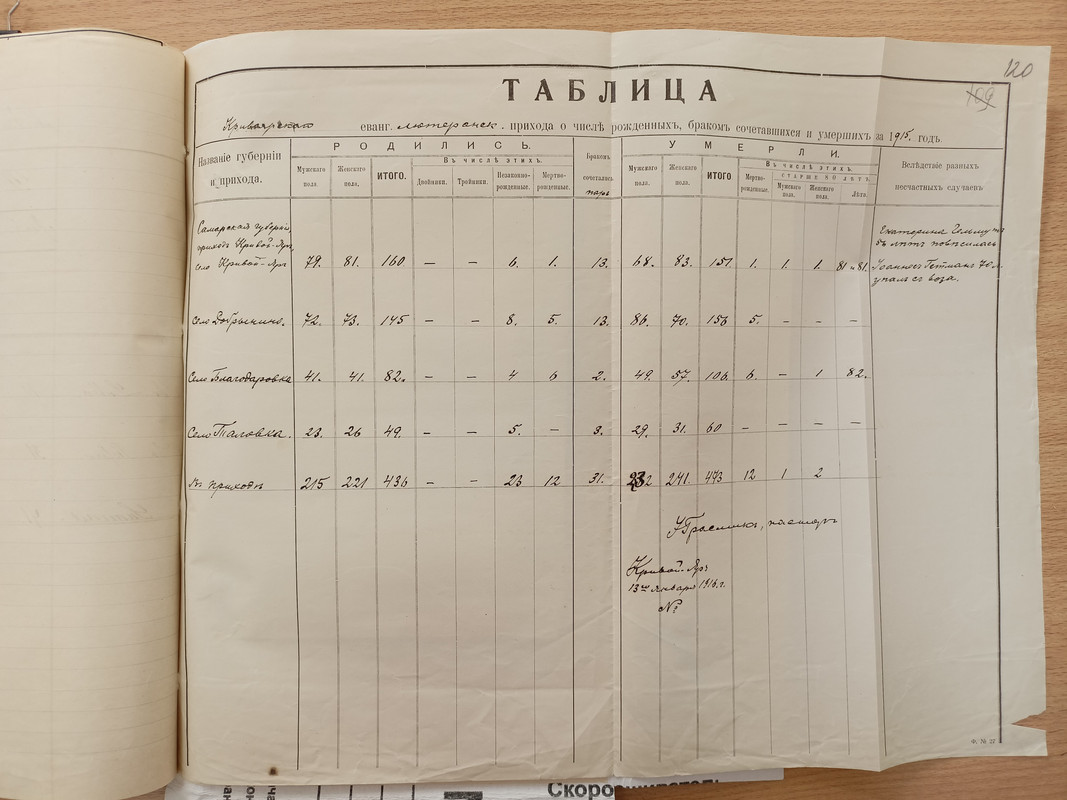 120
109
ТАБЛИЦА
Кривоярскаго еванг. лютеранск. прихода о числѣ рожденныхъ, бракомъ сочетавшихся и умершихъ за 1915. годъ.
Названіе губерніи и прихода.
РОДИЛИСЬ.
Мужскаго пола. Женскаго пола. ИТОГО. Въ числѣ этихъ.
Двойники. Тройники. Незаконно-рожденные. Мертво-рожденные.
Бракомъ сочетались паръ
УМЕРЛИ.
Мужскаго пола. Женскаго пола. ИТОГО Въ числѣ этихъ.
Мертво-рожденные. СТАРШЕ 80 ЛѢТЪ.
Мужскаго пола. Женскаго пола. Лѣта.
Вслѣдствіе разныхъ несчастныхъ случаевъ
Самарская губернія,
приходъ Кривой-Яръ,
село Кривой-Яръ 79. 81. 160 — — 6. 1. 13. 68. 83. 151. 1. 1. 1. 81 и 81.
Екатерина
лѣтъ повѣсилась
Іоаннесъ 70 л.
упалъ съ воза.
Село Добрынино. 72. 73. 145 — — 8. 5. 13. 86. 70. 156 5. — — —
Село Благодаровка 41. 41. 82. — — 4 6 2. 49. 57. 106. 6. — 1 82.
Село Таловка. 23. 26 49. — — 5. — 3. 29. 31. 60 — — — —
Въ приходѣ 215 221 436 — — 23 12 31. 232 241 473 12 1 2
пасторъ
Кривой-Яръ
13го января 1916 г.
№
Ф. № 27
Скоросшиватель